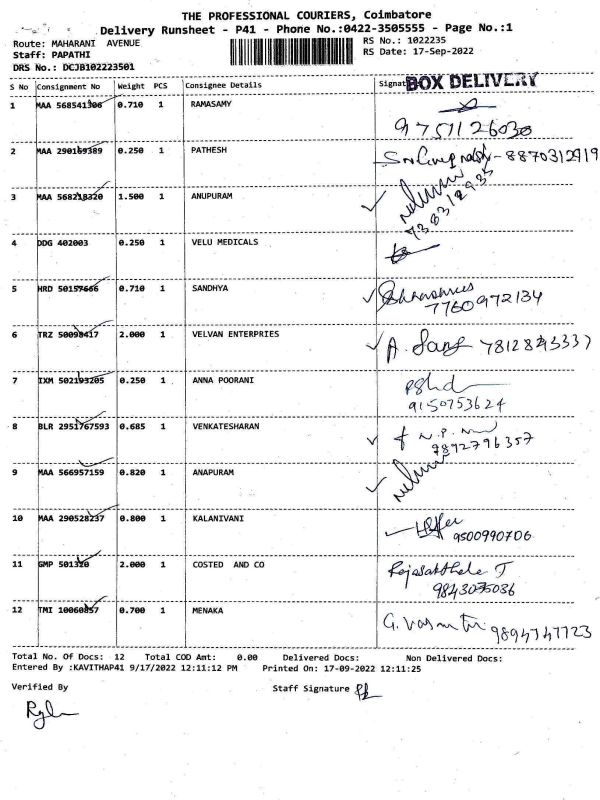 THE PROFESSIONAL COURIERS, Coimbatore
Delivery Runsheet - P41 - Phone No.:0422-3505555 - Page No.:1
Route: MAHARANI AVENUE RS No.: 1022235
Staff: PAPATHI RS Date: 17-Sep-2022
DRS No.: DCJB102223501
S No Consignment No Weight PCS Consignee Details Signat BOX DELIVERY
1 MAA 568541306 0.710 1 RAMASAMY
9751126030
2 MAA 290169389 0.250 1 PATHESH 8870312919
3 MAA 568218320 1.500 1 ANUPURAM
738312935
4 DDG 402003 0.250 1 VELU MEDICALS
5 HRD 50157666 0.710 1 SANDHYA
7760972134
6 TRZ 50098417 2.000 1 VELVAN ENTERPRIES A.
7 IXM 502193205 0.250 1 ANNA POORANI
9150753624
8 BLR 2951767593 0.685 1 VENKATESHARAN
9892796357
9 MAA 566957159 0.820 1 ANAPURAM
10 MAA 290528237 0.800 1 KALANIVANI
9500990706
11 GMP 501320 2.000 1 COSTED AND CO
9843075036
12 TMI 10060857 0.700 1 MENAKA G. 9894747723
Total No. Of Docs: 12 Total COD Amt: 0.00 Delivered Docs: Non Delivered Docs:
Entered By :KAVITHAP41 9/17/2022 12:11:12 PM Printed On: 17-09-2022 12:11:25
Verified By Staff Signature